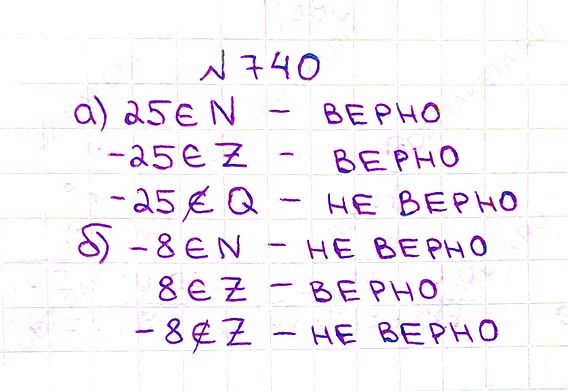 № 740
а) 25 ∈ N – ВЕРНО
-25 ∈ Z – ВЕРНО
-25 ∉ Q – НЕ ВЕРНО
б) -8 ∈ N – НЕ ВЕРНО
8 ∈ Z – ВЕРНО
-8 ∉ Z – НЕ ВЕРНО